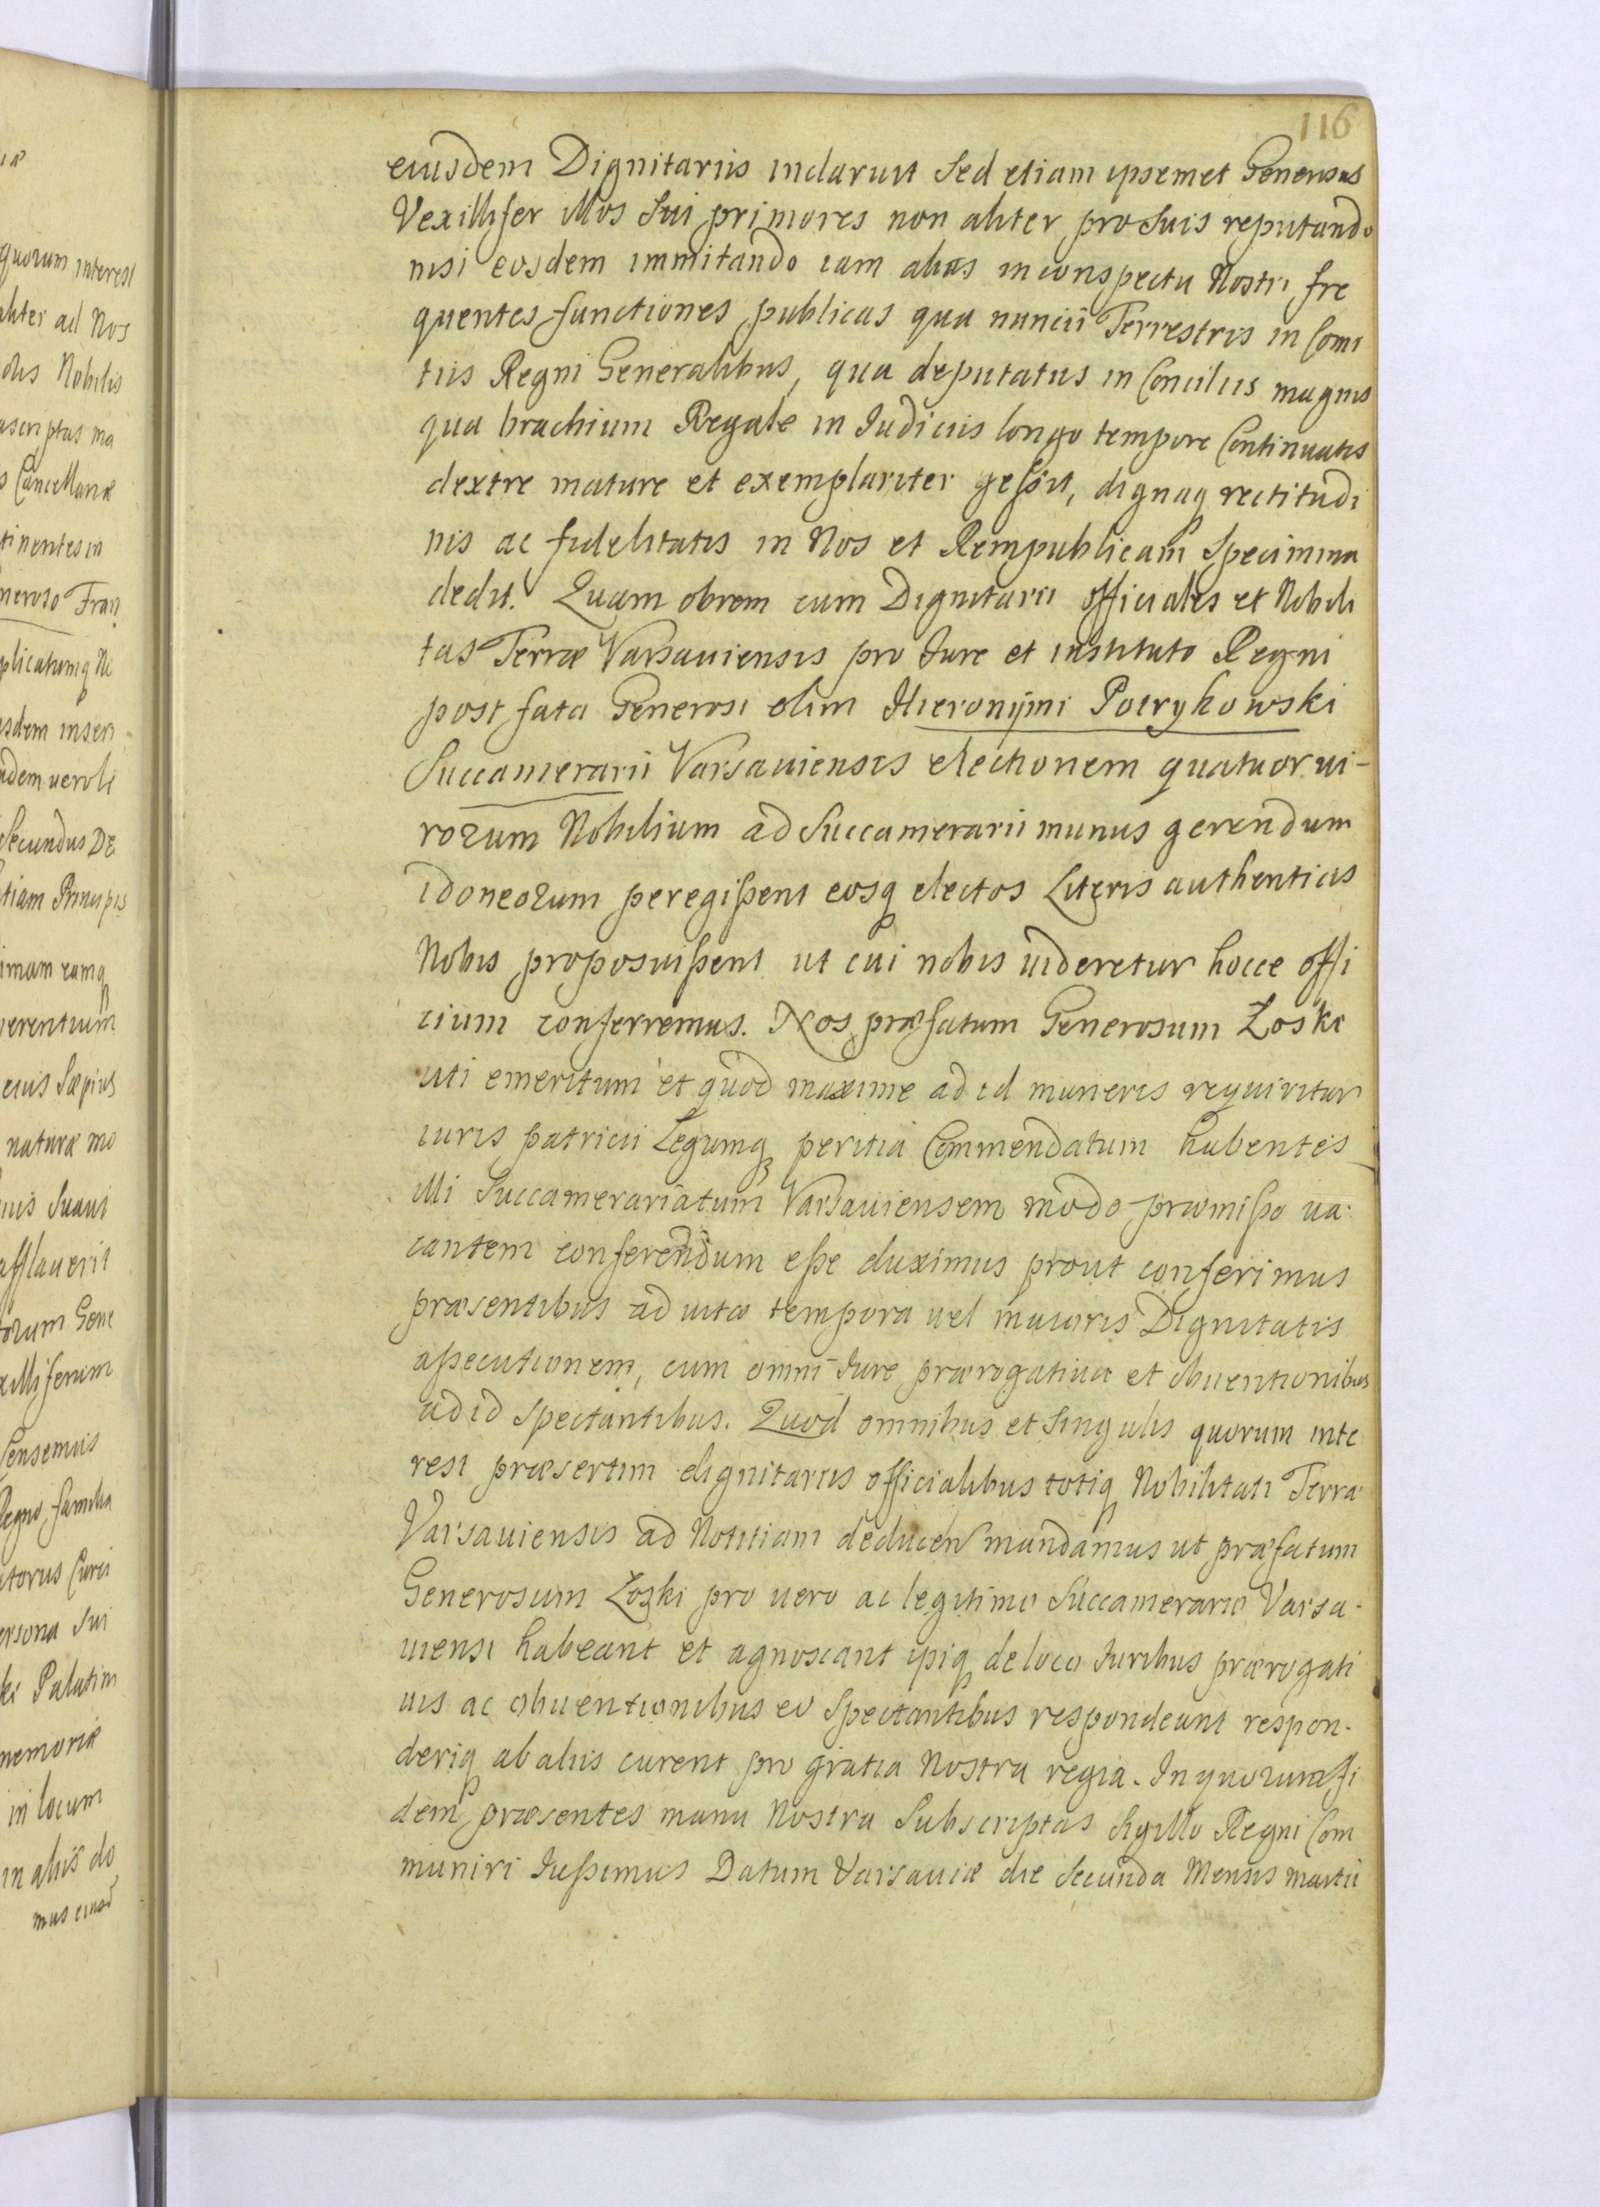 116
eiusdem Dignitariis inclaruit sed etiam ipsemet Generosus
Vexillifer illos sui primores non aliter pro suis reputando
nisi eosdem immitando iam alias in conspectu Nostri fre
quentes functiones publicas qua nuncii Terrestris in Comi
tiis Regni Generalibus, qua deputatus in Conciliis magnis
qua brachium Regale in Iudiciis longo tempore Continuatis
dextre mature et exemplariter gessit, dignaq rectitudi
nis ac fidelitatis in Nos et Rempublicam Specimina
dedit. Quam obrem cum Dignitarii officiales et Nobili
tas Terræ Varsaviensis pro Iure et instituto Regni
post fata Generosi olim Hieronijmi Potrykowski
Succamerarii Varsaviensis electionem quatuor vi-
rorum Nobilium ad Succamerarii munus gerendum
idoneorum peregissent eosq electos Literis authenticis
Nobis proposuissent ut cui nobis uideretur hocce offi
cium conferremus. Nos præfatum Generosum Zoski
uti emeritum et quod maxime ad id muneris requiritur
iuris patricii Legumq peritia Commendatum habentes
illi Succamerariatum Varsaviensem modo præmisso ua
cantem conferendum esse duximus prout conferimus
præsentibus ad uitæ tempora uel maioris Dignitatis
assecutionem, cum omni Iure prærogativa et obuentionibus
ad id spectantibus. Quod omnibus et singulis quorum inte
rest præsertim dignitariis officialibus totiq Nobilitati Terræ
Varsaviensis ad Notitiam deducen mandamus ut præfatum
Generosum Zoski pro uero ac legitimo Succamerario Varsa-
uiensi habeant et agnoscant ipsiq de loco Iuribus prærogati
uis ac obuentionibus eo Spectantibus respondeant respon-
deriq ab aliis curent pro gratia Nostra regia. In quorum fi
dem præsentes manu Nostra Subscriptas Sigillo Regni Com
muniri Iussimus Datum Varsaviæ die Secunda Mensis martii
quorum interest
aliter ad Nos
Nobilis
Cancellariæ
tinentes in
neroso Fran
plicatumq Ni
sdem inseri
Secundus De
tiam Principis
eius Sæpius
naturæ mo
afflaverit
orum Gene
xilliferum
Censemus
Regno familia
ersona Sui
ki Palatini
memoriæ
in locum
in aliis do